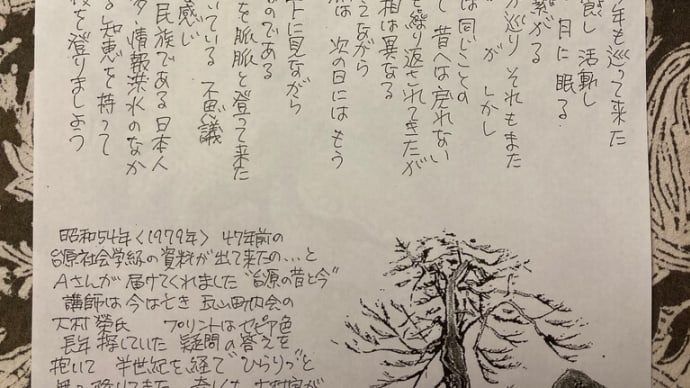 年も巡って来た
し 活動し
月に眠る
繋がる
巡り それもまた
が しかし
は同じことの
て 昔へは戻れない
を繰り返されてきたが
相は異なる
てながら
は 次の日にはもう
下に見ながら
なのである
を脈脈と登って来た
いている 不思議
感じ
民族である日本人
情報洪水のなか
る知恵を持って
を登りましょう
昭和54年<1979年> 47年前の
台原社会学級の資料が出て来たの…と
Aさんが届けてくれました“台原の昔と今”
講師は今は亡き 瓦山町内会の
大村榮氏 プリントはセピア色
長年探していた 疑問の答えを
抱いて 半世紀を経て“ひらりっ”と